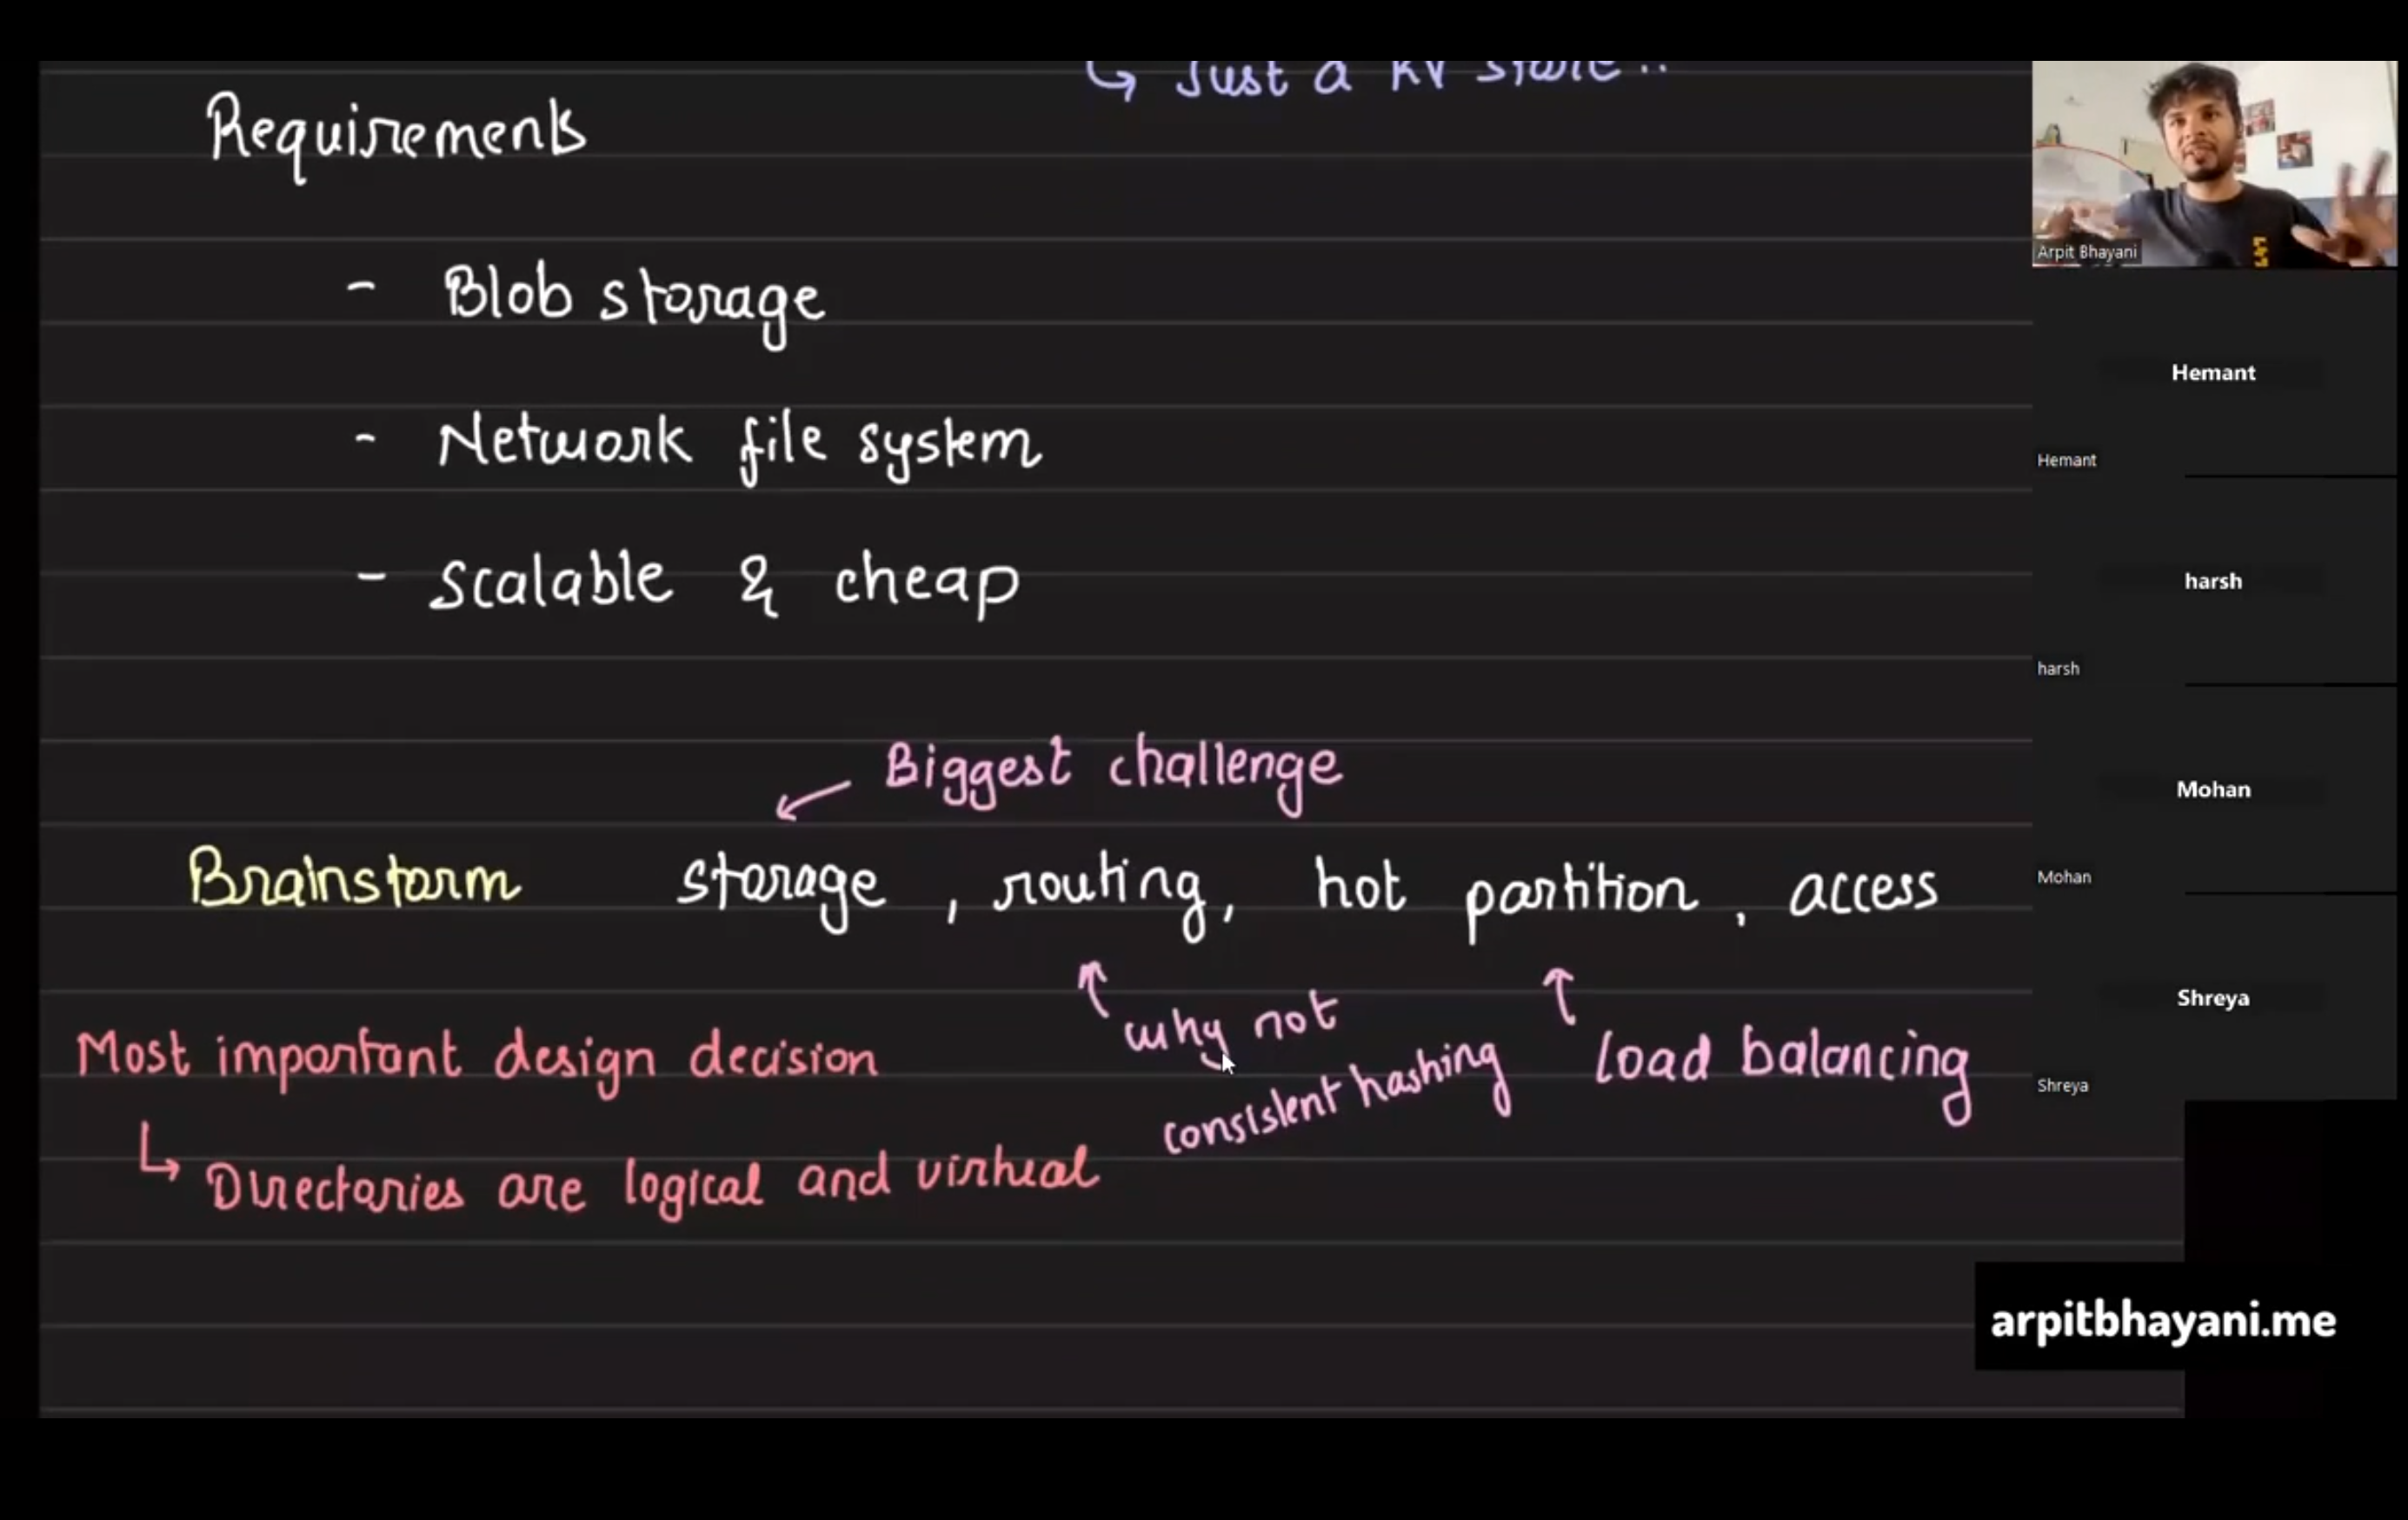 ↳ Just a KV store..
Requirements
- Blob storage
- Network file system
- Scalable & cheap
Biggest challenge
Brainstorm storage, routing, hot partition, access
why not
consistent hashing
load balancing
Most important design decision
↳ Directories are logical and virtual
Arpit Bhayani
Hemant
Hemant
harsh
harsh
Mohan
Mohan
Shreya
Shreya
arpitbhayani.me